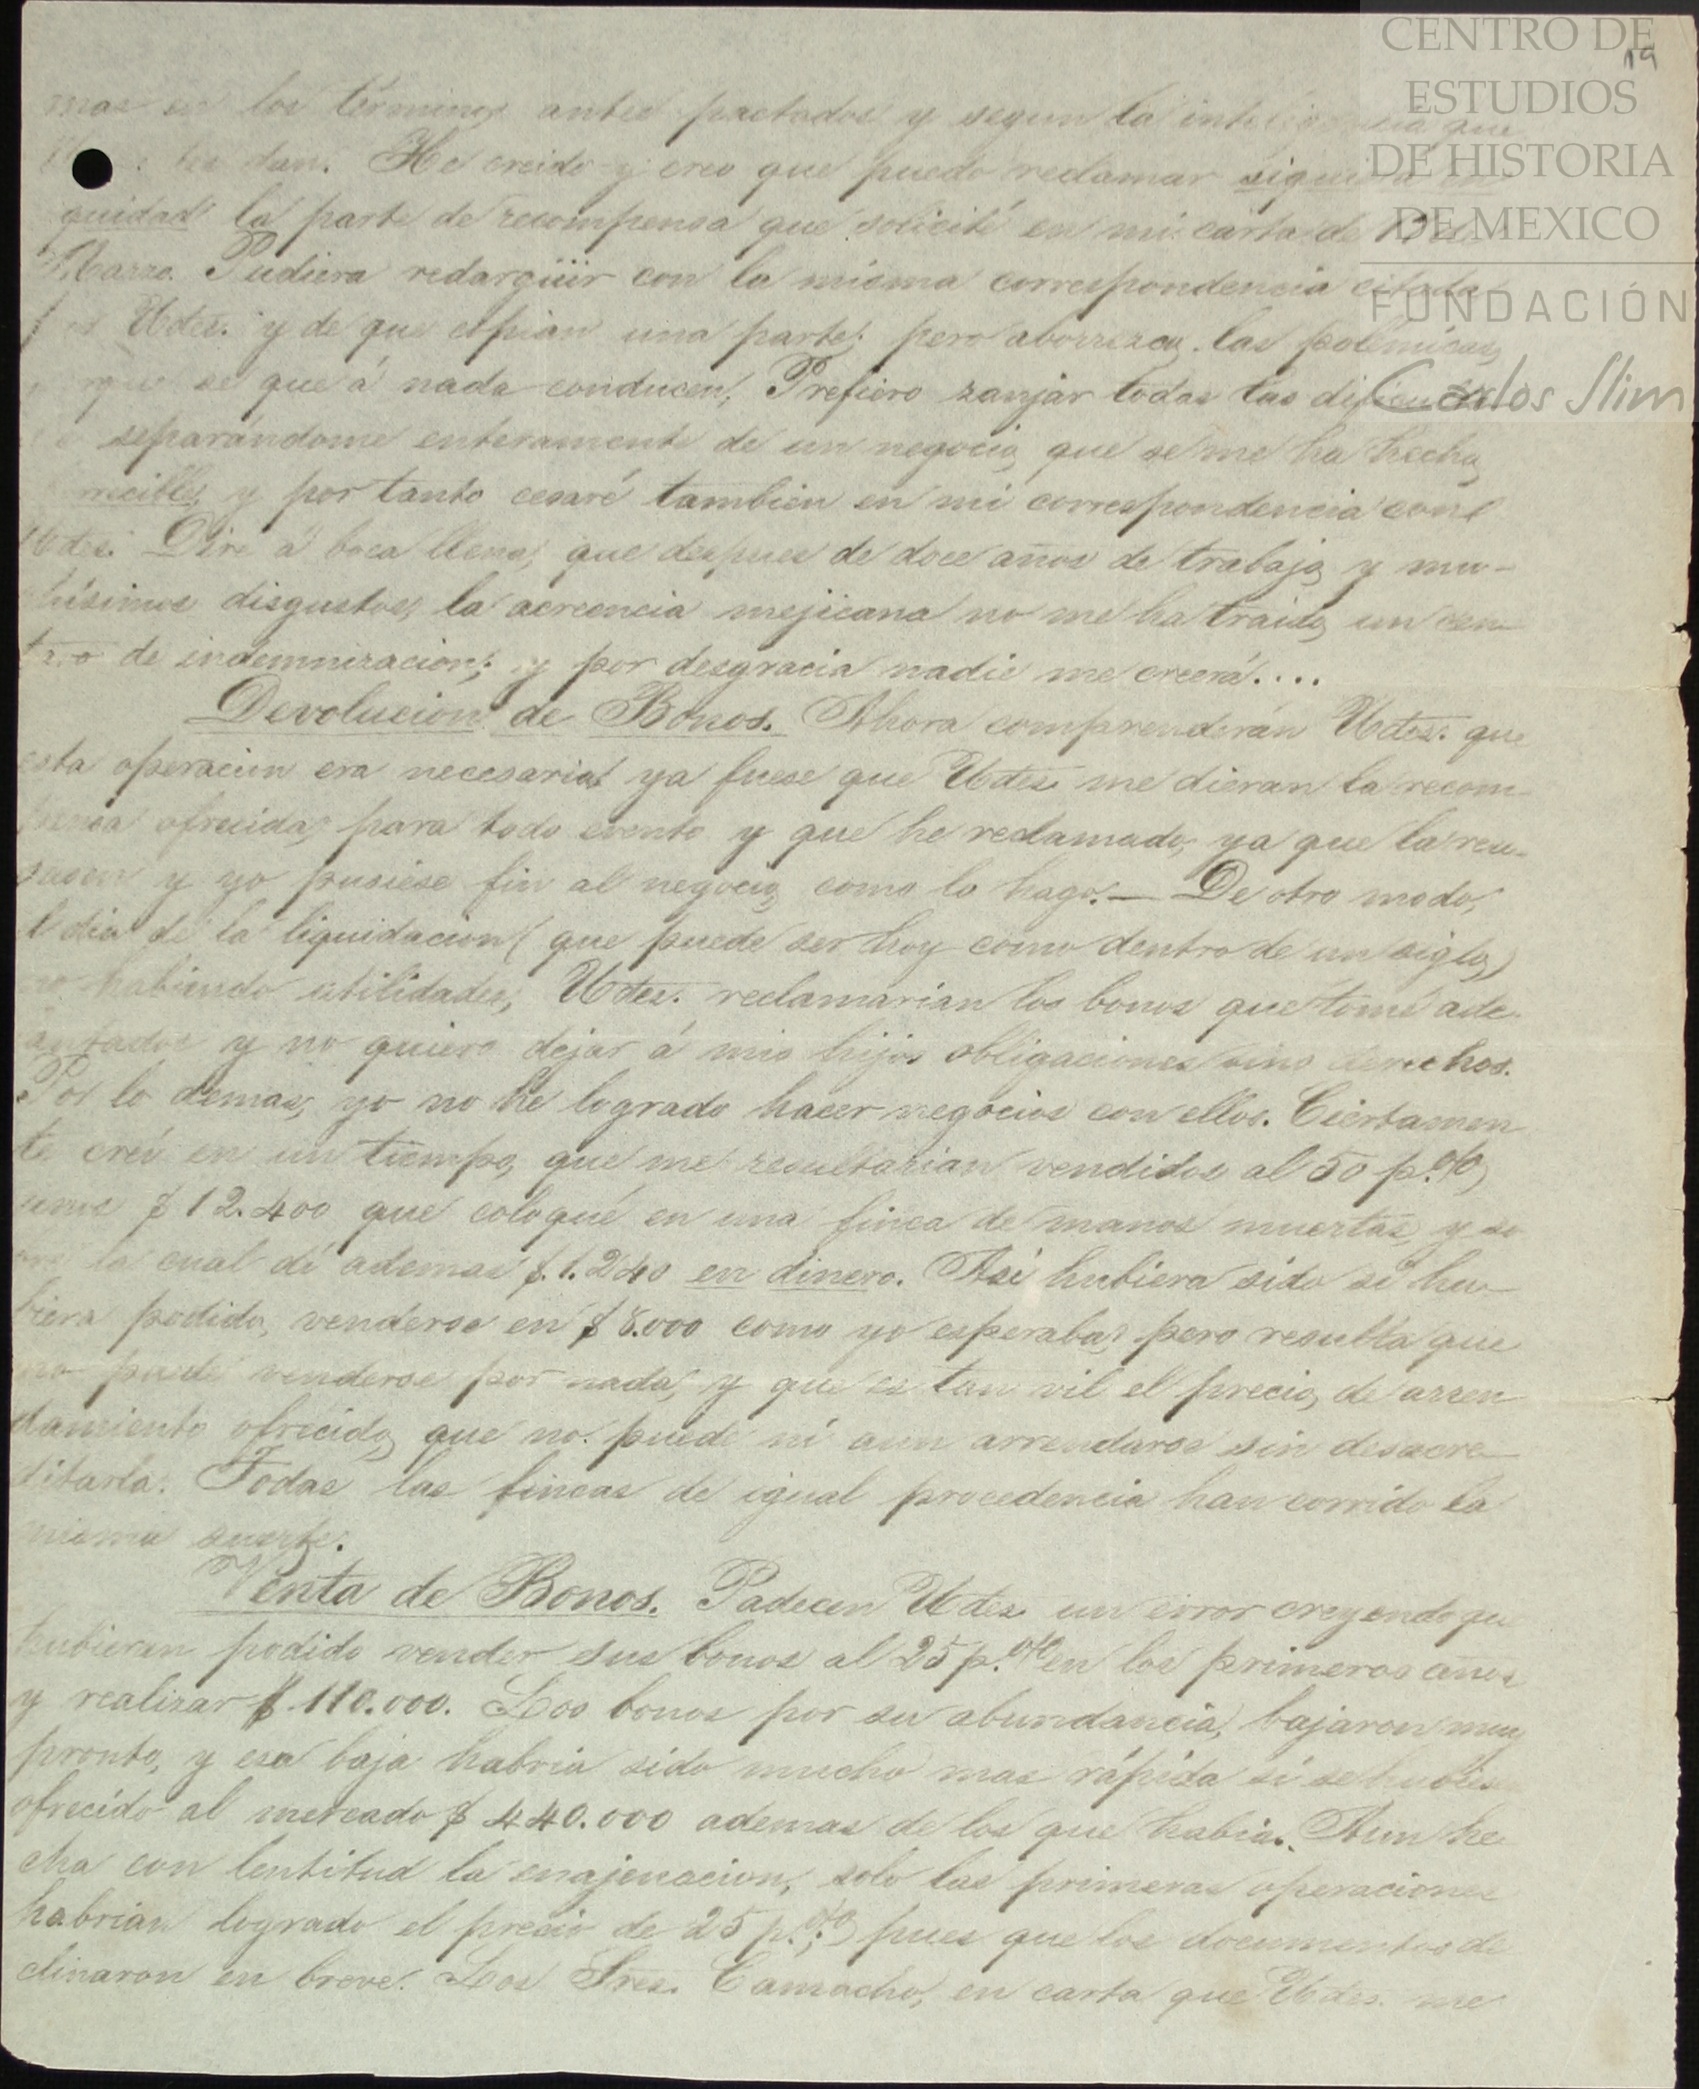 CENTRO DE
ESTUDIOS
DE HISTORIA
DE MEXICO
FUNDACIÓN
Carlos Slim
19
mas en los términos antes pactados y segun la inteligencia que
les dan. He creido y creo que puedo reclamar siquiera en
quidad la parte de recompensa que solicité en mi carta de
Marzo. Pudiera redargüir con la misma correspondencia citada
Udes. y de que copian una parte; pero aborrezco las polémicas,
se que á nada conducen. Prefiero zanjar todas las
separándome enteramente de un negocio, que se me ha hecho
y por tanto cesaré tambien en mi correspondencia con
Udes. Diré á boca llena, que despues de doce años de trabajo, y mu-
chisimos disgustos, la acreencia mejicana no me ha traido, un cen-
de indemnizacion; y por desgracia nadie me creerá....
Devolucion de Bonos. Ahora comprenderán Udes. que
esta operacion era necesaria ya fuese que Udes. me dieran la recom-
pensa ofrecida, para todo evento y que he reclamado, ya que la reu-
sasen y yo pusiese fin al negocio, como lo hago.— De otro modo,
l dia de la liquidacion (que puede ser hoy como dentro de un siglo,)
no habiendo utilidades, Udes. reclamarian los bonos que tomé ade-
antados y no quiero dejar á mis hijos obligaciones sino derechos.
Por lo demas, yo no he logrado hacer negocios con ellos. Ciertamen
te creí en un tiempo, que me resultarian vendidos al 50 p.%
unos $ 12.400 que coloqué en una finca de manos muertas, y so
bre la cual dí ademas $.1.240 en dinero. Asi hubiera sido si hu-
biera podido, venderse en $ 8.000 como yo esperaba; pero resulta que
no puede venderse por nada, y que es tan vil el precio, de arren
damiento ofrecido, que no puede ni aun arrendarse sin desacre-
ditarla. Todas las fincas de igual procedencia han corrido la
misma suerte.
Venta de Bonos. Padecen Udes. un error creyendo qu
hubieran podido vender sus bonos al 25 p.% en los primeros años
y realizar $.110.000. Los bonos por su abundancia, bajaron muy
pronto, y esa baja habria sido mucho mas rápida si se hubiese
ofrecido al mercado $ 440.000 ademas de los que habia. Aun he
cha con lentitud la enajenacion, solo las primeras operaciones
habrian logrado el precio de 25 p.%; pues que los documentos de
clinaron en breve. Los Sres. Camacho, en carta que Udes. me